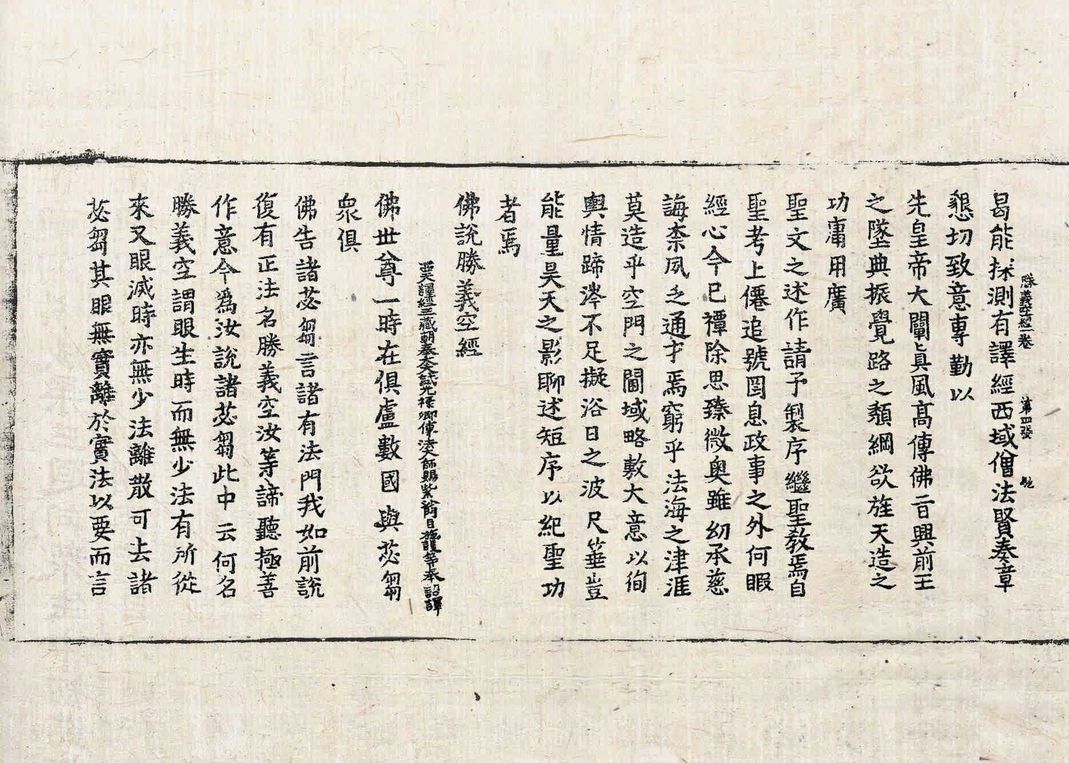 曷能探測有譯經西域僧法賢奏章
勝義空經一卷 第四張
懇切致意專勤以
先皇帝大闡眞風高傳佛音興前王
之墜典振覺路之頹綱欲旌天造之
功庸用廣
聖文之述作請予製序繼聖教焉自
聖考上僊追號罔息政事之外何暇
經心今已禫除思臻微奧雖幼承慈
誨柰夙乏通才焉窮乎法海之津涯
莫造乎空門之閫域略敷大意以徇
輿情蹄涔不足擬浴日之波尺箠豈
能量昊天之影聊述短序以紀聖功
者焉
佛說勝義空經
西天譯經三藏朝奉大夫試光祿卿傳法大師賜紫臣施護等奉詔譯
佛世尊一時在俱盧數國與苾芻
衆俱
佛告諸苾芻言諸有法門我如前說
復有正法名勝義空汝等諦聽極善
作意今爲汝說諸苾芻此中云何名
勝義空謂眼生時而無少法有所從
來又眼滅時亦無少法離散可去諸
苾芻其眼無實離於實法以要而言